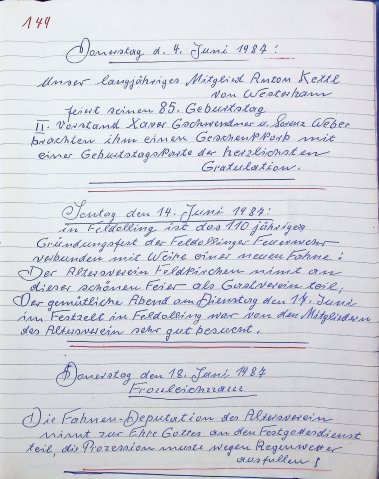 149
Donnerstag d. 4. Juni 1987:
Unser langjähriges Mitglied Anton Kettl
von Westerham
feiert seinen 85. Geburtstag
II. Vorstand Xaver Gschwendner u. Lorenz Weber
brachten ihm einen Geschenkkorb mit
einer Geburtstagskarte der herzlichsten
Gratulation.
Sontag den 14. Juni 1987:
in Feldolling ist das 110 jähriges
Gründungsfest der Feldollinger Feuerwehr
verbunden mit Weihe einer neuen Fahne!
Der Altersverein Feldkirchen nimt an
dieser schönen Feier als Gastverein teil;
Der gemütliche Abend am Dienstag den 17. Juni
im Festzelt in Feldolling war von den Mitgliedern
des Altersverein sehr gut besucht.
Donnerstag den 18. Juni 1987
Fronleichnam
Die Fahnen-Deputation des Altersverein
nimt zur Ehre Gottes an den Festgottesdienst
teil, die Prozession muste wegen Regenwetter
ausfallen!